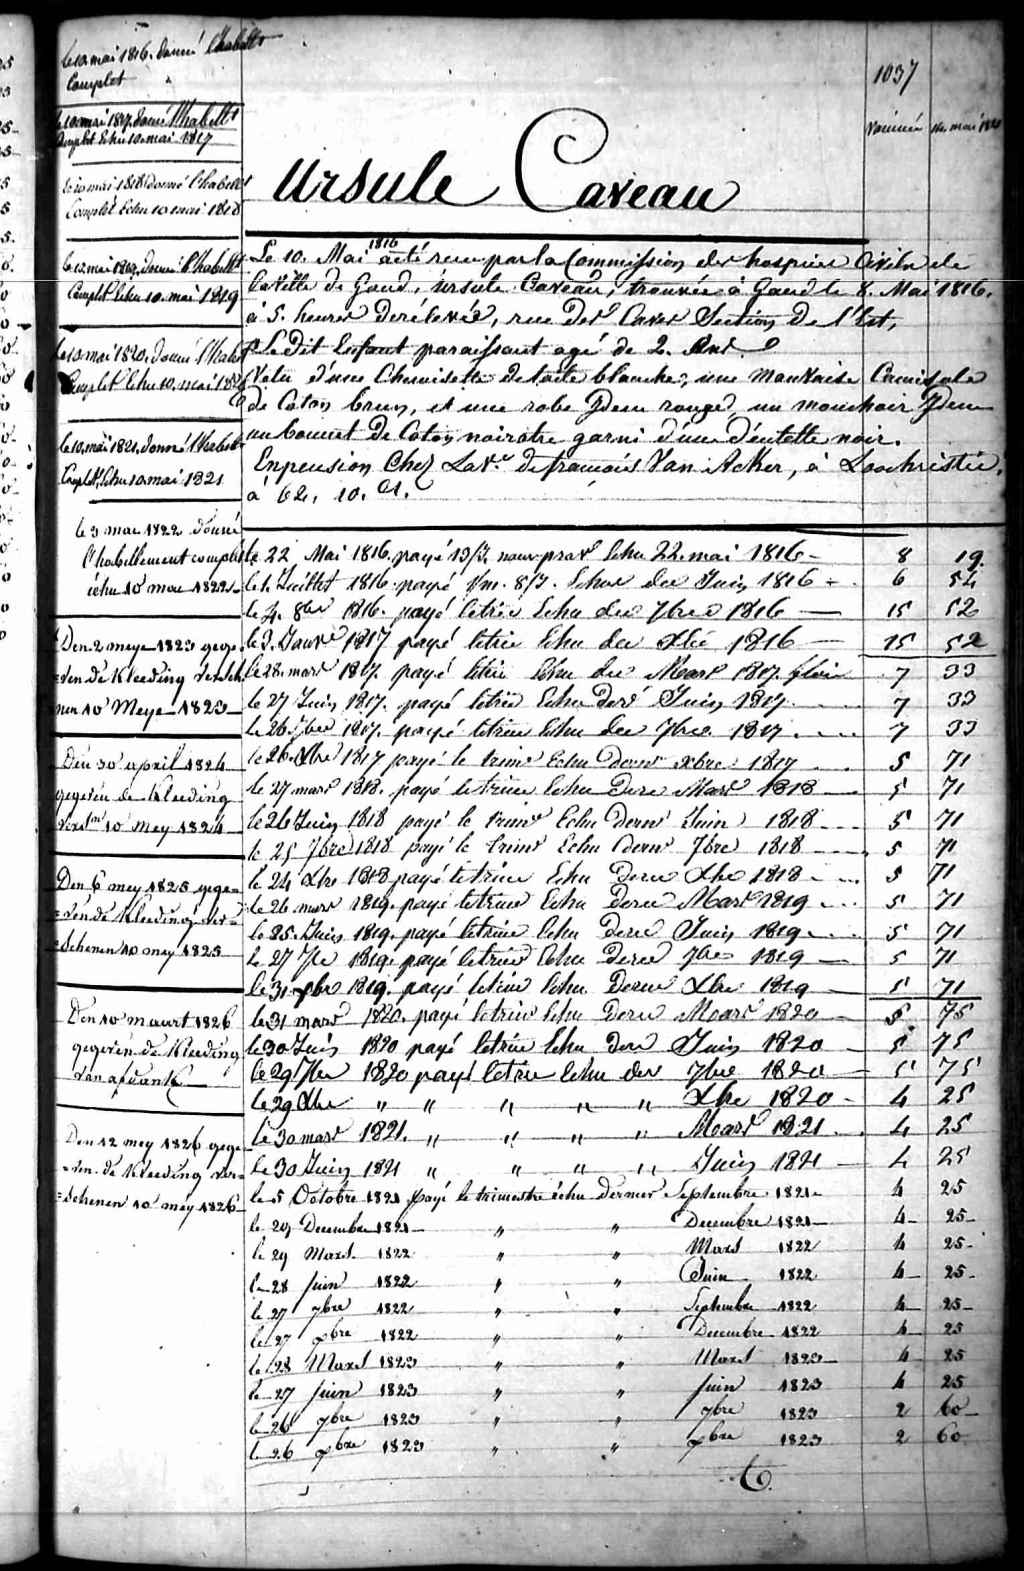 1037
le 10 mai 1816. donné l'habillt
Complet
le 10 mai 1817. donné l'habillt
Complet Echu 10 mai 1817
le 10 mai 1818 donné l'habillt
Complet Echu 10 mai 1818
donné l'habillt
Complet Echu 10. mai 1819
le 10 mai 1820. donné l'habillt
Complet Echu 10. mai 1820
le 10. mai 1821. donné l'habillt
Complet, Echu 10 mai 1821
le 3 mai 1822 donné
l'habillement complet
échu 10 mai 1822
Den 2 meye 1823 gege-
=ven de Kleeding versch
nen 10 Meye 1823
Den 30 april 1824
gegeven de Kleeding
10 mey 1824
Den 6 mey 1825 gege-
=ven de Kleeding ver=
=schenen 10 mey 1825
Den 10 maart 1826
gegeven de Kleeding
van
Den 12 mey 1826 gege-
=ven de Kleeding ver-
=schenen 10 mey 1826
Ursule Caveau
Le 10. Mai 1816 a été reçu par la Commission des hospices Civils de
la Ville de Gand, ursule Caveau, trouvée à Gand le 8. Mai 1816.
à 5. heures de rélevée, rue des Caves Section de l'Est,
Le dit Enfant paraissant agé de 2. Ans
Vetu d'une Chemisette de toile blanche, une mauvaise Camisole
de Coton brun, et une robe Idem rouge, un mouchoir Idem
un bonnet de Coton noiratre garni d'une dentelle noir.
En pension Chez La Ve. de francois Van Acker, à Loochristie,
à 62. 10. Cs.
le 22 Mai 1816. payé Echu 22. mai 1816 — 8 19.
le 1. Juillet 1816. payé Echu der Juin 1816 - 6 54
le 4. 8bre 1816. payé letrie Echu der 7bre 1816 — 15 52
le 3. Janvr 1817 payé letrie Echu der Xbre 1816 — 15 52
le 28. mars 1817. payé letrie Echu der Mars 1817. 7 33
le 27 Juin 1817. payé letrie Echu der Juin 1817 7 33
le 26 7bre 1817. payé letrie Echu der 7bre 1817 7 33
le 26. Xbre 1817 payé le trime Echu dernr Xbre 1817 5 71
le 27 mars 1818. payé letrime Echu derr Mars 1818 — 5 71
le 26 Juin 1818 payé le trime Echu dernr Juin 1818 5 71
le 25 7bre 1818 payé le trime Echu dernr 7bre 1818 5 71
le 24 Xbre 1818 payé letrime Echu derr Xbre 1818 5 71
le 26 mars 1819. payé letrime Echu derr Mars 1819 5 71
le 25. Juin 1819. payé letrime Echu derr Juin 1819 5 71
le 27 7bre 1819. payé letrime Echu derr 7bre 1819 — 5 71
le 31 Xbre 1819. payé letrime Echu derr Xbre 1819 — 5 71
le 31 mars 1820. payé letrime Echu derr Mars 1820 — 5 75
le 30 Juin 1820 payé letrime Echu derr Juin 1820 — 5 75
le 29 7bre 1820 payé letrie Echu der 7bre 1820 — 5 75
le 29 Xbre " " " " " Xbre 1820 - 4 25
le 30 mars 1821. " " " " Mars 1821 4 25
le 30 Juin 1821 " " " " Juin 1821 — 4 25
le 5 Octobre 1821 payé le trimestre échu dernier Septembre 1821 4 25
le 29 Decembre 1821 " " Decembre 1821 4 25
le 29 Mars 1822 " " Mars 1822 4 25
le 28 juin 1822 " " Juin 1822 4 25
le 27 7bre 1822 " " Septembre 1822 4 25
le 27 Xbre 1822 " " Decembre 1822 4 25
le 28 Mars 1823 " " Mars 1823 4 25
le 27 juin 1823 " " juin 1823 4 25
le 26 7bre 1823 " " 7bre 1823 2 60
le 26 Xbre 1823 " " Xbre 1823 2 60